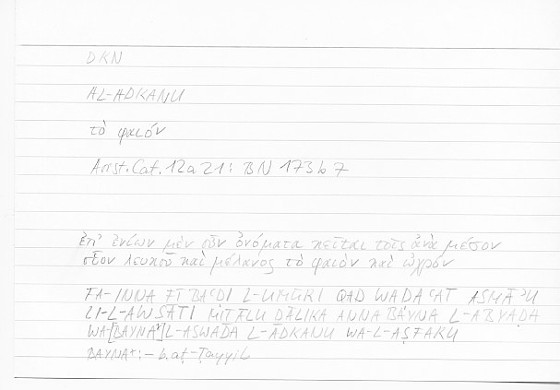 DKN
AL-ADKANU
τὸ φαιόν
Arist. Cat. 12a21: BN 173b7
ἐπ' ἐνίων μὲν οὖν ὀνόματα κεῖται τοῖς ἀνὰ μέσον
οἷον λευκοῦ καὶ μέλανος τὸ φαιὸν καὶ ὠχρόν
FA-INNA FĪ BAʿDI L-UMŪRI QAD WADAʿAT ASMĀʾU
LI-L-AWSATI MITĀLU DĀLIKA ANNA BAYNA L-ABYAḌA
WA-[BAYNAˀ] L-ASWADA L-ADKANU WA-L-AṢFARU
BAYNAˀ: – b. aṭ-Ṭayyib